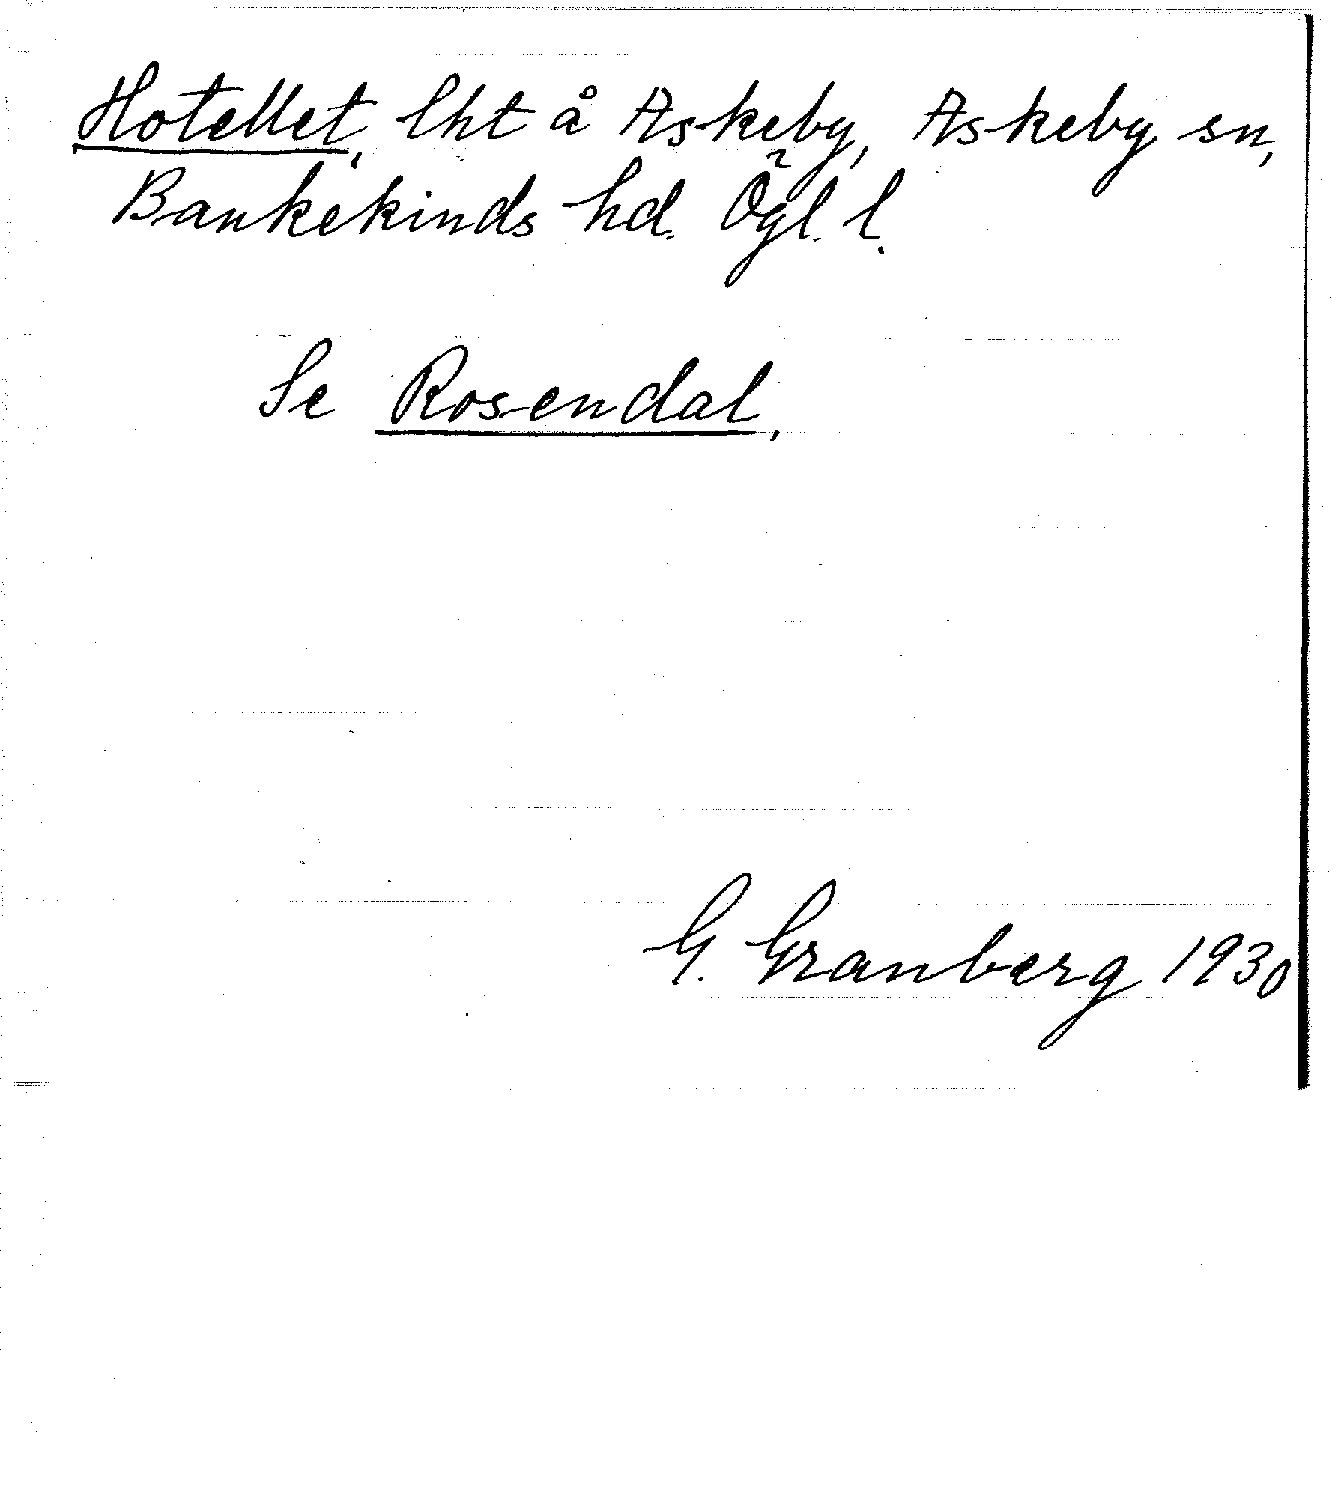 Hotellet, lht å Askeby, Askeby sn,
Bankekinds hd. Ögl. l.
Se Rosendal.
G. Granberg 1930